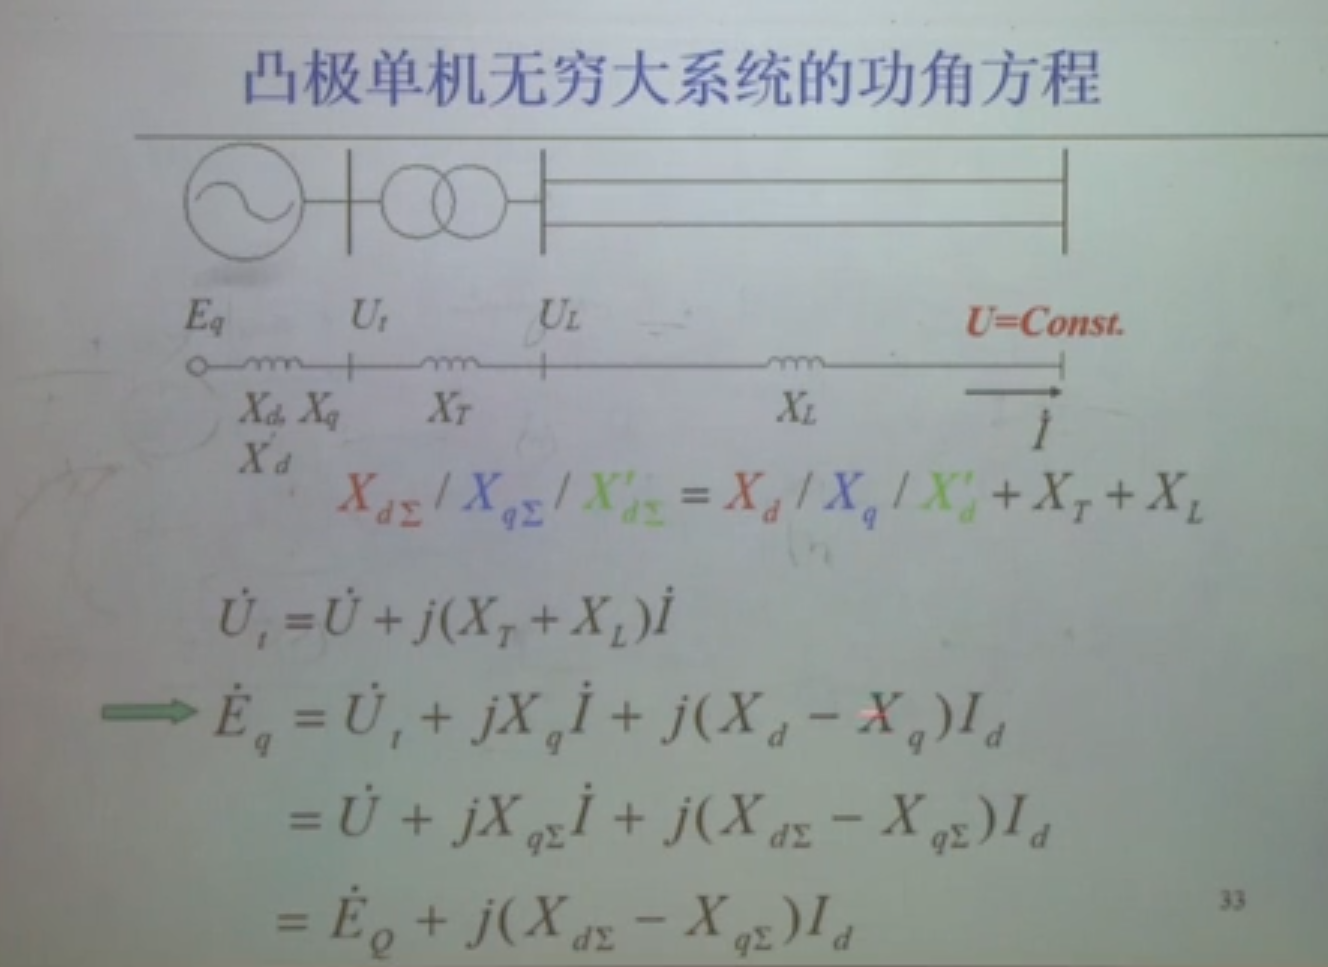 凸极单机无穷大系统的功角方程
E_q U_t U_L U=Const.
X_d, X_q X_T X_L İ
X'_d
X_{dΣ} / X_{qΣ} / X'_{dΣ} = X_d / X_q / X'_d + X_T + X_L
U̇_t = U̇ + j(X_T + X_L)İ
Ė_q = U̇_t + jX_qİ + j(X_d − X_q)I_d
= U̇ + jX_{qΣ}İ + j(X_{dΣ} − X_{qΣ})I_d
= Ė_Q + j(X_{dΣ} − X_{qΣ})I_d
33